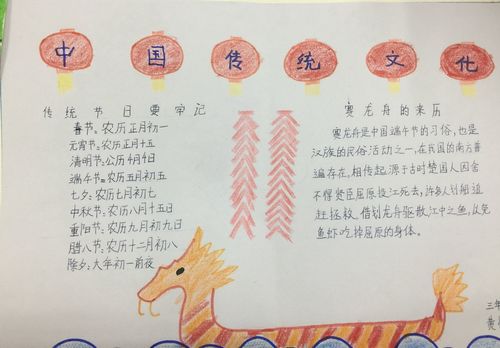 中国传统文化
传统节日要牢记
春节：农历正月初一
元宵节：农历正月十五
清明节：公历4月4日
端午节：农历五月初五
七夕：农历七月初七
中秋节：农历八月十五日
重阳节：农历九月初九日
腊八节：农历十二月初八
除夕：大年初一前夜
赛龙舟的来历
赛龙舟是中国端午节的习俗，也是
汉族的民俗活动之一，在我国的南方普
遍存在，相传起源于古时楚国人因舍
不得贤臣屈原投江死去，许多人划船追
赶拯救，借划龙舟驱散江中之鱼，以免
鱼虾吃掉屈原的身体。
三年
黄